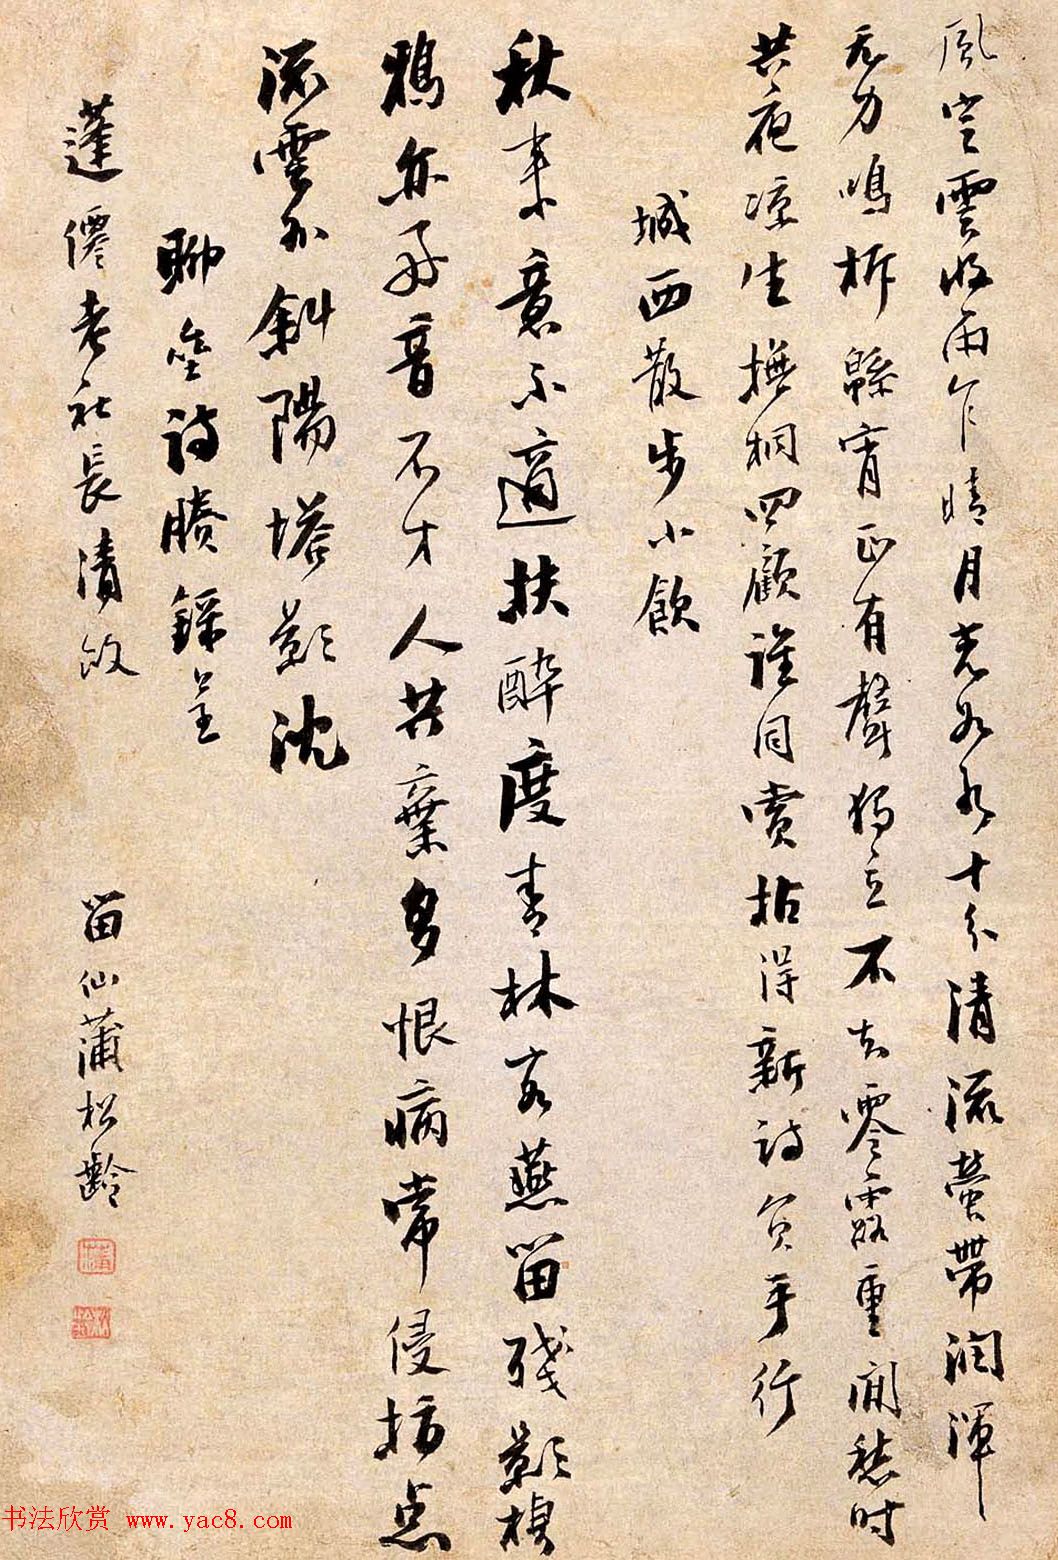 風定雲收雨乍晴月光如水十分清流螢帶潤渾
无力鳴柝緜宵正有聲獨立不知零露重閒愁時
共夜凉生撫桐四顧誰同賞拈得新詩負手行
城西散步小飲
秋來意不適扶醉度青林客燕畱殘影棲
鴉亦好音不才人共棄多恨病常侵指点
流雲外斜陽塔影沈
聊齋詩賸錄呈
蓬僊老社長清政 畱仙蒲松齡
书法欣赏 www.yac8.com